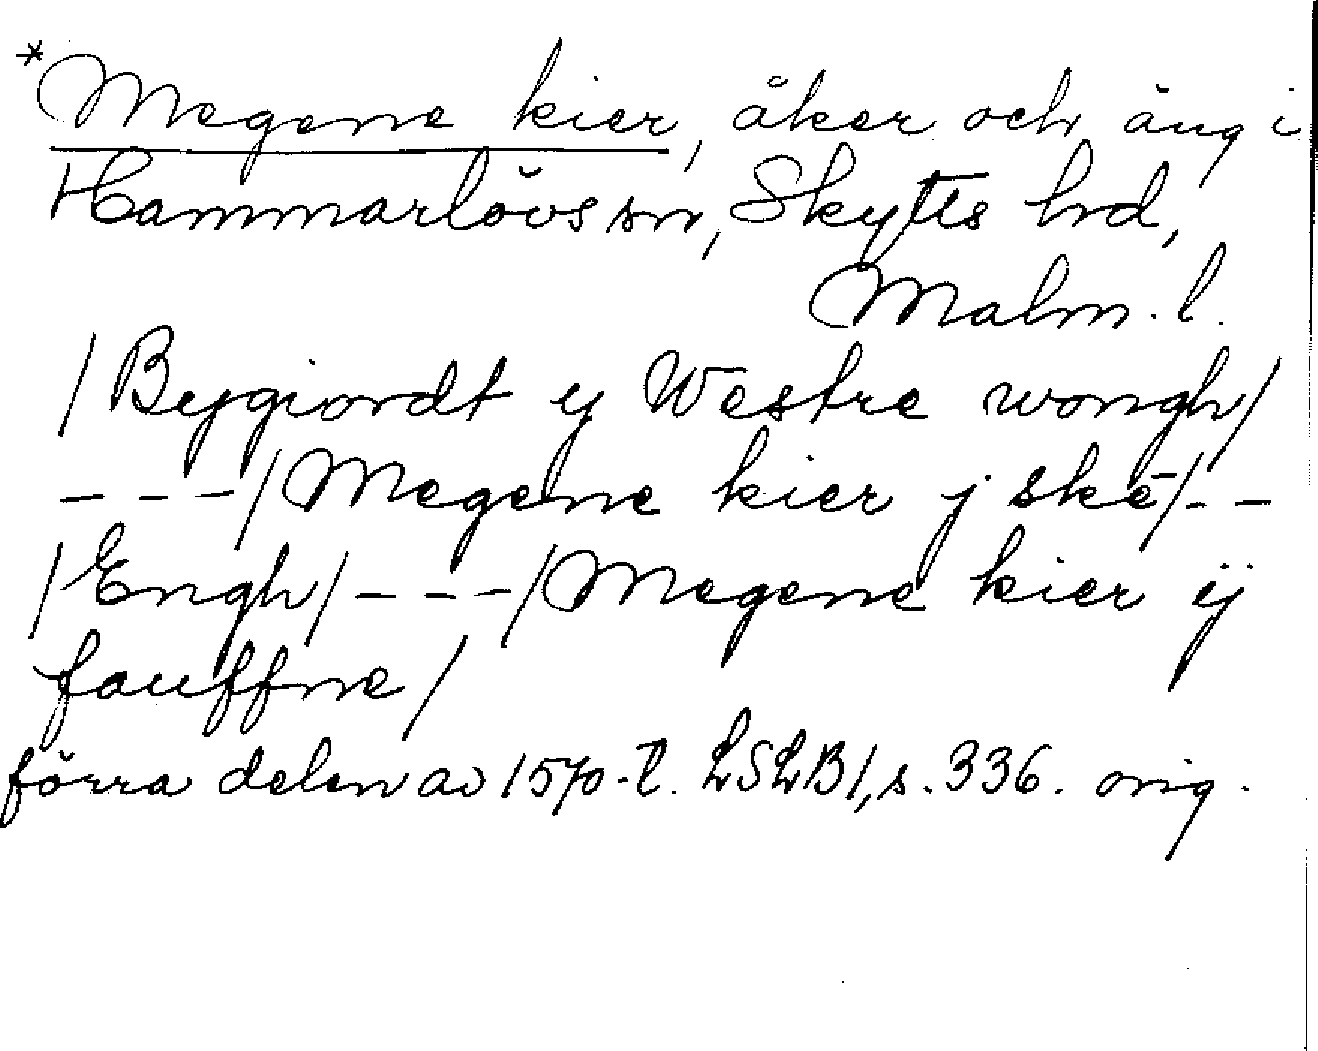 *Megene kier, åker och äng i
Hammarlövs sn, Skytts hrd,
Malm. l.
/Bygiordt y Westre wongh/
- - -/Megene kier j skē/- -
/Engh/- - -/Megene kier ÿ
fauffne/
förra delen av 1570-t. LSLB1, s. 336. orig.